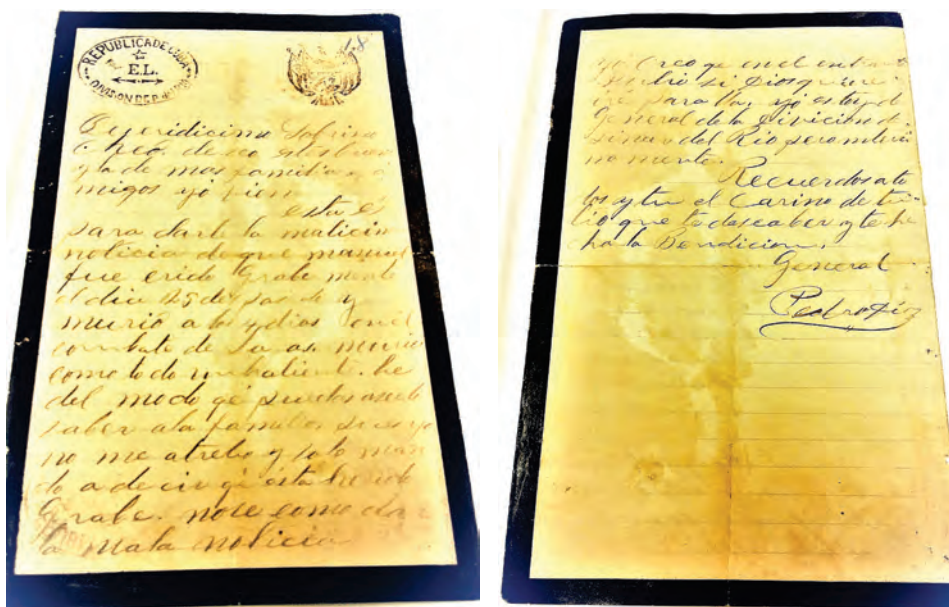 REPUBLICA DE CUBA
E.L.
DIVISION DE P.
18
Queridicimo Sobrino
deseo estes bueno
y de mas familia y a
migos yo bien
esta es
para darte la maticin
noticia de que manuel
fue erido Grabe mente
el dia 25 del pasado y
murió a los y dias en el
combate de murio
como todo un baliente. be
del modo qe puedes aserle
saber a la familia pues yo
no me atrebo y solo man
do a decir qe está herido
Grabe. no se como dar
la mala noticia
yo Creo qe en el entrante
si Dios quiere
iré para lla, yo estoy de
General de la Divicion de
Pinar del Rio pero interi
na mente.
Recuerdos a to
dos y tu el Carino de tu
tio que te desea ber y te he
cha la Bendicion,
General
Pedro Diaz